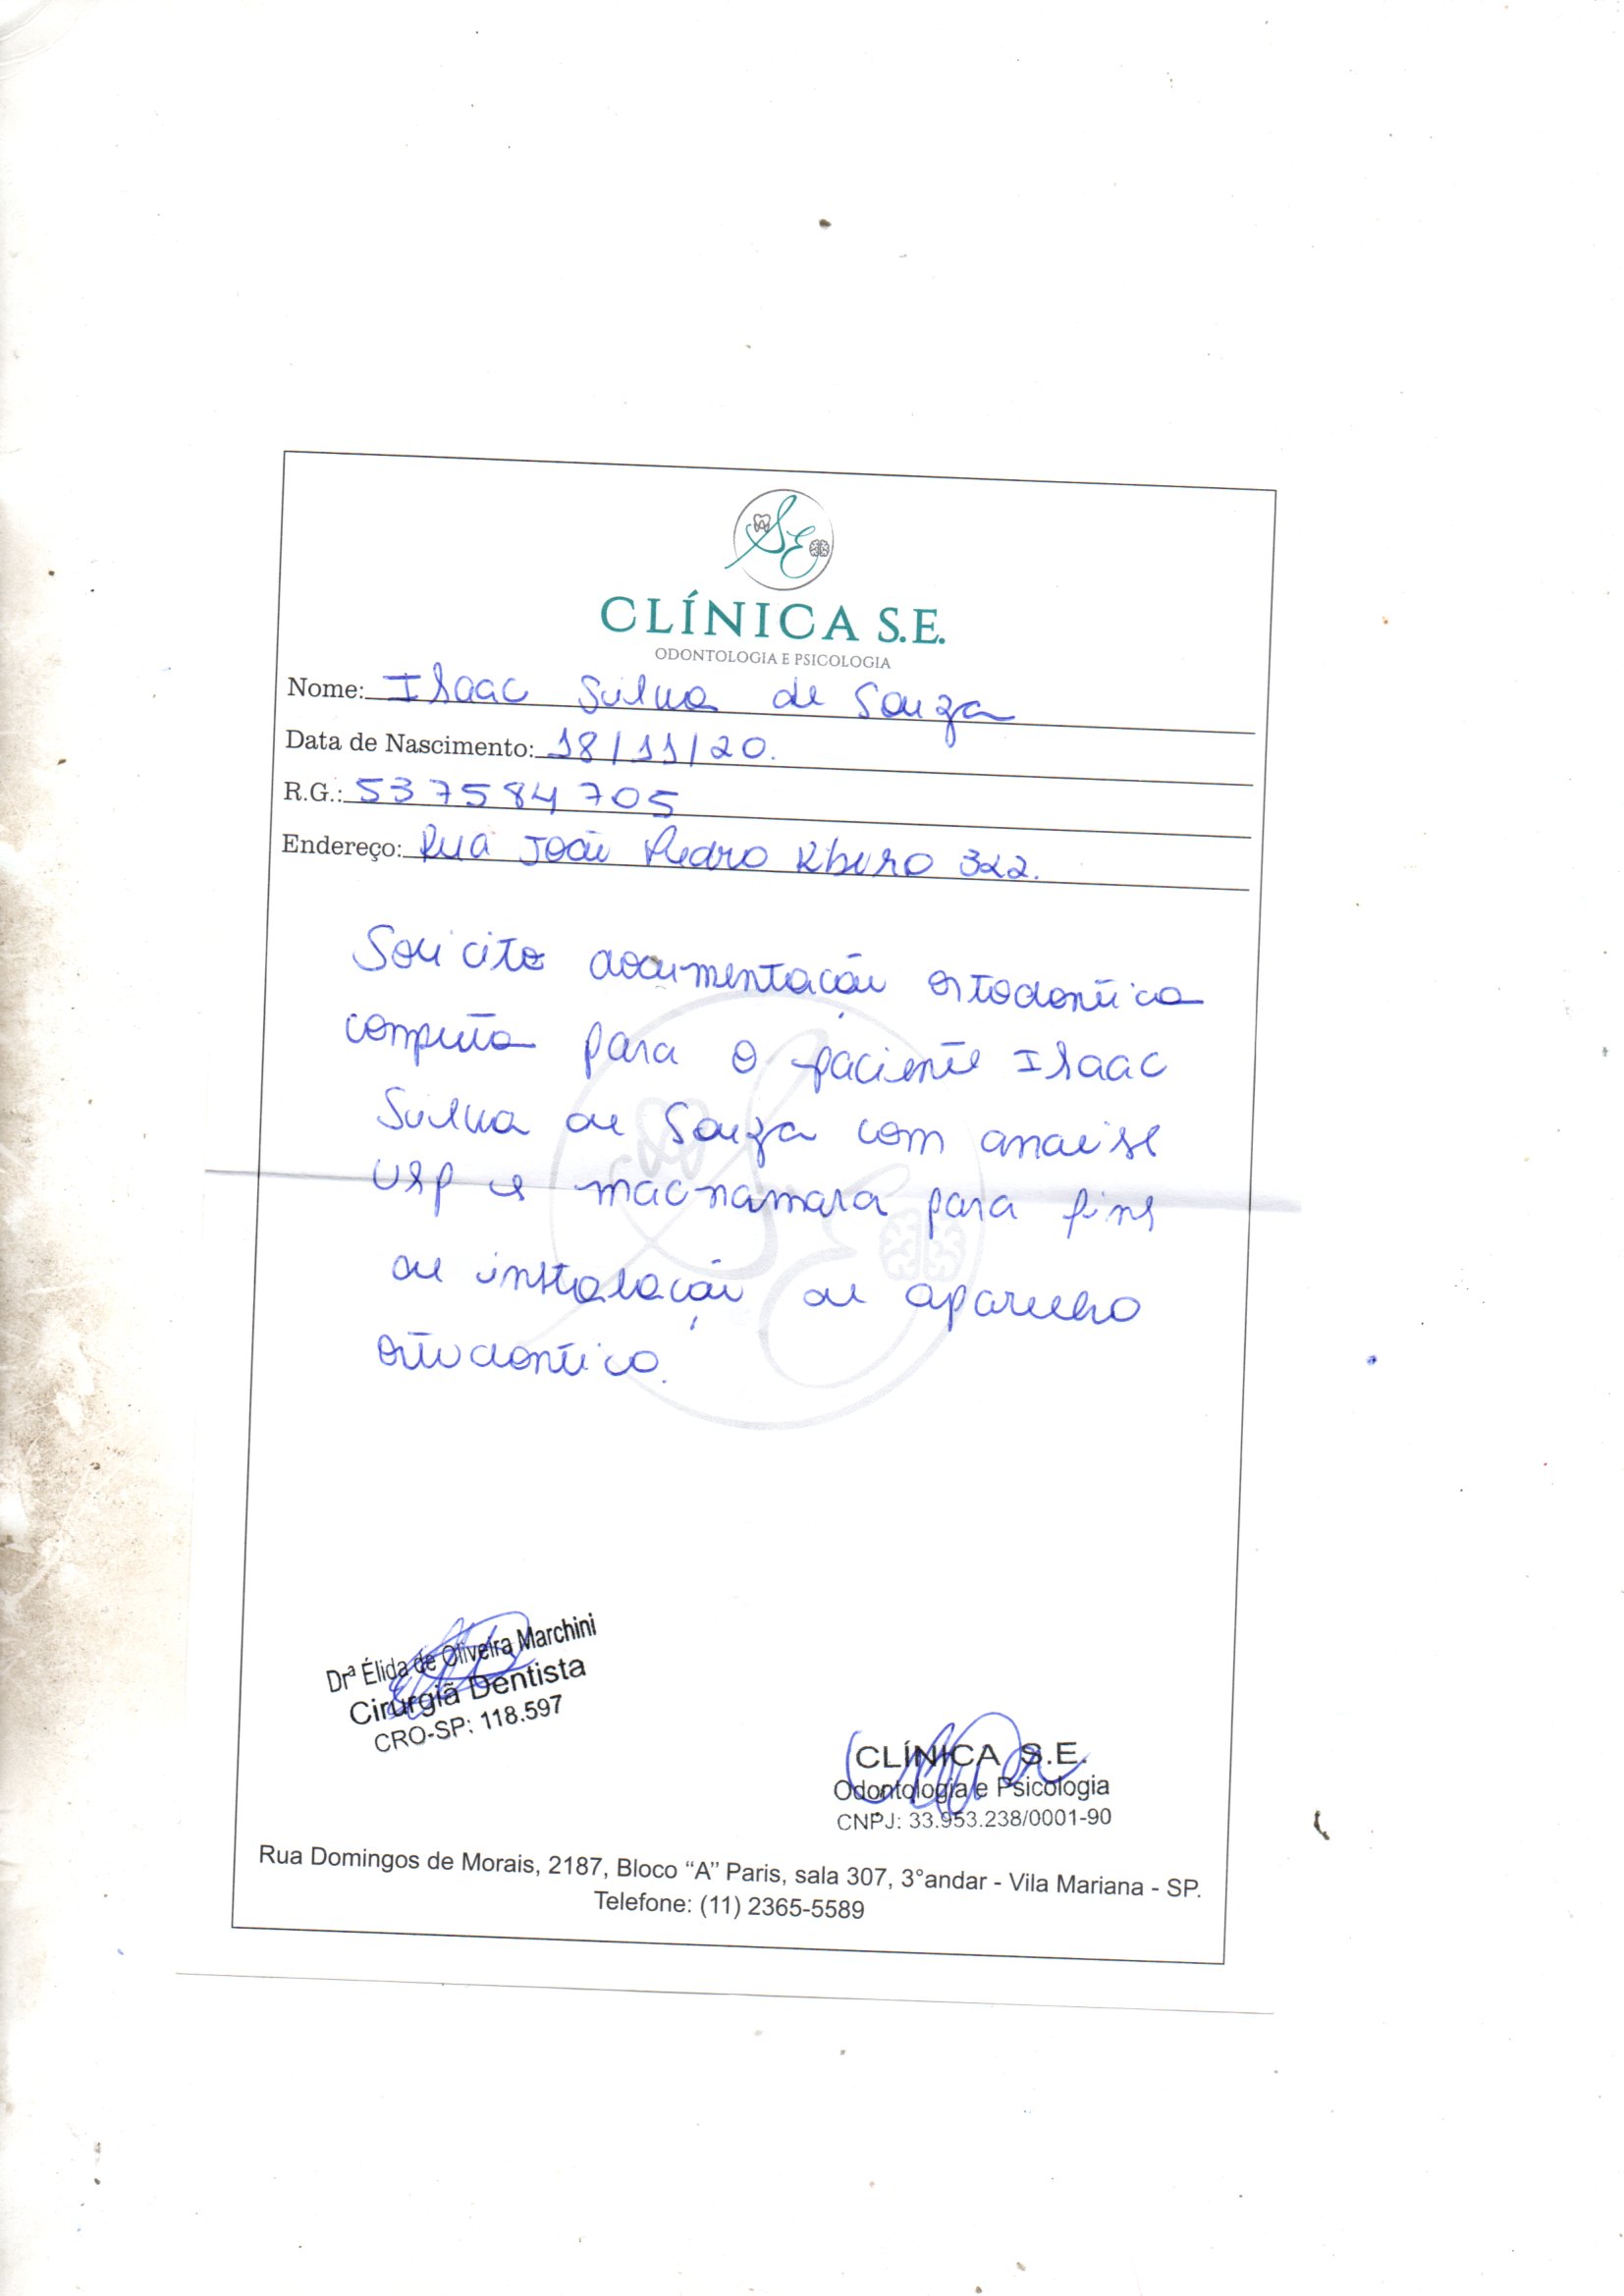 SE
CLÍNICA S.E.
ODONTOLOGIA E PSICOLOGIA
Nome: Isaac Silva de Souza
Data de Nascimento: 18/11/20.
R.G.: 537584705
Endereço: Rua João Pedro Ribeiro 322.
Solicito documentação ortodontica
completa para o paciente Isaac
Silva de Souza com analise
USP e macnamara para fins
de instalação de aparelho
ortodontico.
Drª Élida de Oliveira Marchini
Cirurgiã Dentista
CRO-SP: 118.597
CLÍNICA S.E.
Odontologia e Psicologia
CNPJ: 33.953.238/0001-90
Rua Domingos de Morais, 2187, Bloco “A” Paris, sala 307, 3°andar - Vila Mariana - SP.
Telefone: (11) 2365-5589